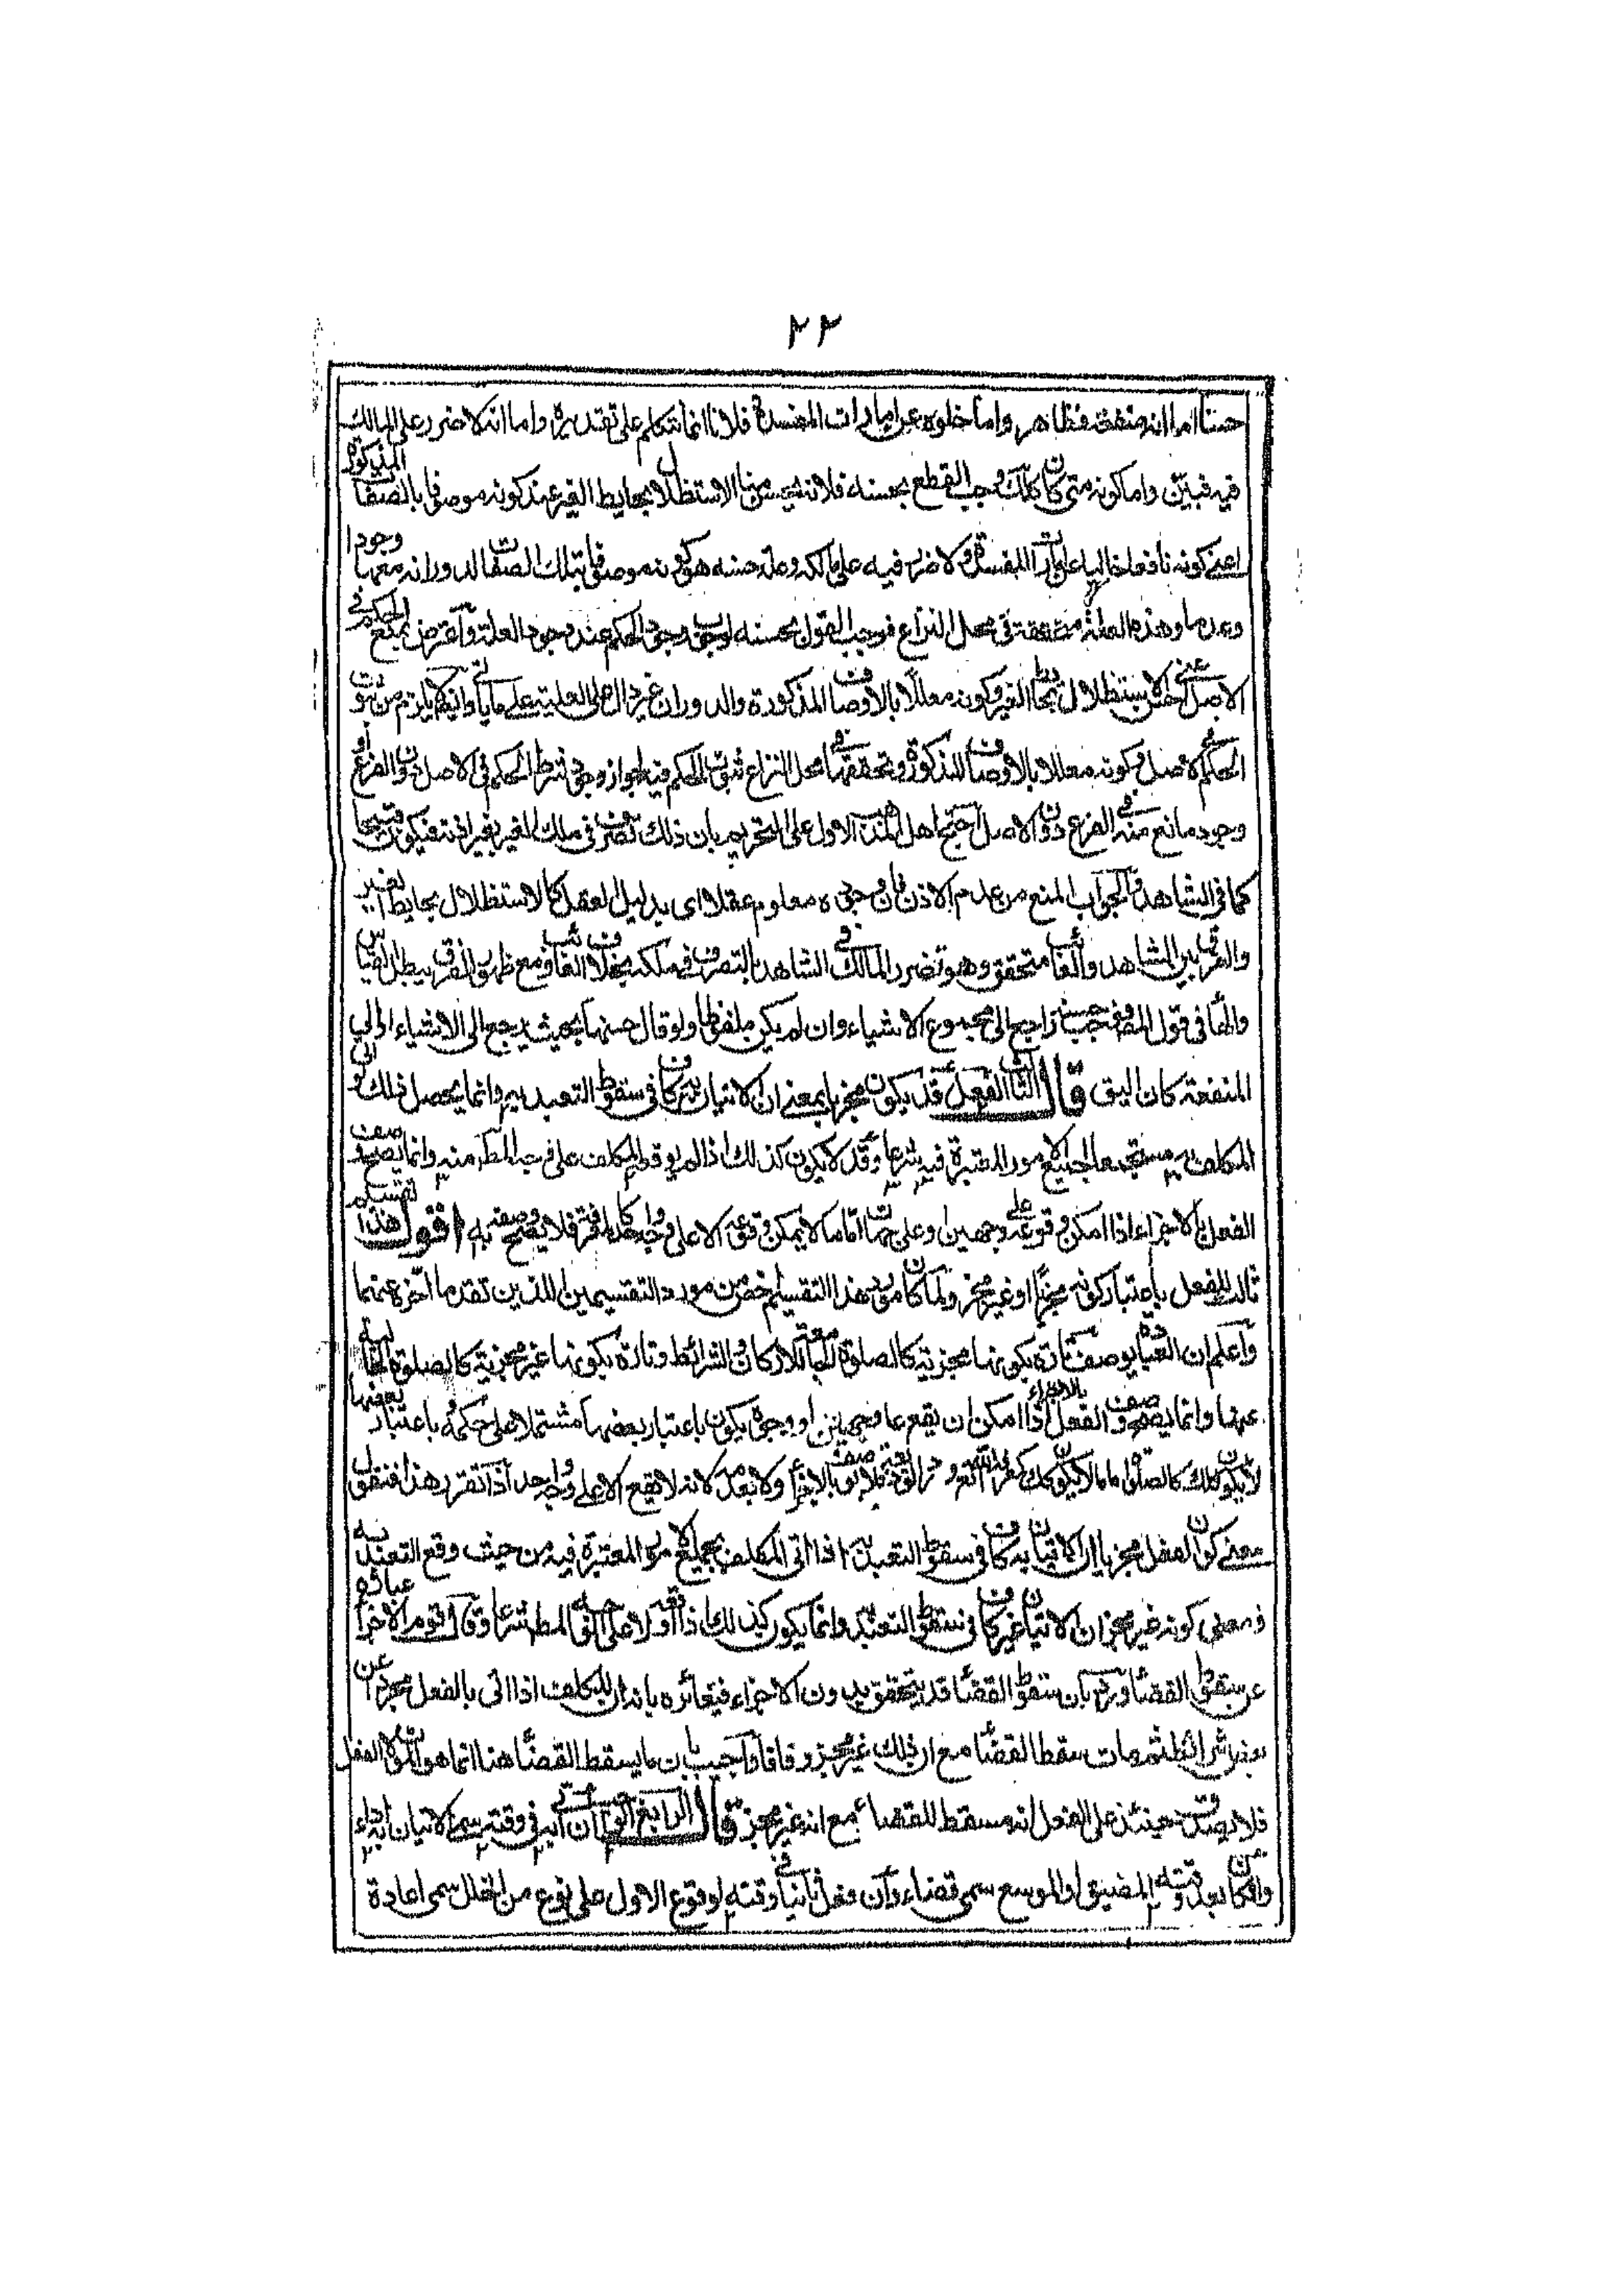 ٢٢
حسنا اما انه منفعة فظاهر واما خلوه عن امارات المفسدة فلانا انما نتكلم على تقديره واما انه لا ضرر على المالك
فيه فبين واما كونه متى كان كذلك وجب القطع بحسنه فلانه يحسن منا الاستظلال بحايط الغير عند كونه موصوفا بالصفات المذكورة
اعنى كونه نافعا خاليا عن امارات المفسدة ولا ضرر فيه على مالكه وعلة حسنه هو كونه موصوفا بتلك الصفات لدورانه معها وجودا
وعدما وهذه العلة متحققة فى محل النزاع فوجب القول بحسنه لوجوب وجود الحكم عند وجود العلة واعترض بمنع الحكم فى
الاصل اعنى حسن الاستظلال بحايط الغير وكونه معللا بالاوصاف المذكورة والدوران غير دال على العلية على ما ياتى وانه لا يلزم من ثبوت
الحكم فى الاصل وكونه معللا بالاوصاف المذكورة وتحققها فى محل النزاع ثبوت الحكم فيه لجواز وجود شرط الحكم فى الاصل دون الفرع او
وجود مانع منه فى الفرع دون الاصل احتج اهل المذهب الاول على التحريم بان ذلك تصرف فى ملك الغير بغير اذنه فيكون قبيحا
كما فى الشاهد والجواب المنع من عدم الاذن فان وجوده معلوم عقلا اى بدليل العقل كالاستظلال بحايط الغير
والفرق بين الشاهد والغائب متحقق وهو تضرر المالك فى الشاهد بالتصرف فى ملكه بخلاف الغائب ومع ظهور الفرق يبطل القياس
والهاء فى قول المصنف حسنها راجع الى مجموع الاشياء وان لم يكن ملفوظا ولو قال حسنهما بحيث يرجع الى الاشياء او الى
المنفعة كان اليق قال الثالث الفعل قد يكون مجزيا بمعنى ان الاتيان به كاف فى سقوط التعبد به وانما يحصل ذلك لو اتى
المكلف به مستجمعا لجميع الامور المعتبرة فيه شرعا وقد لا يكون كذلك اذا لم يوقعه المكلف على الوجه المطلوب منه وانما يصح وصف
الفعل بالاجزاء اذا امكن وقوعه على وجهين او على جهات اما ما لا يمكن وقوعه الا على وجه واحد كالمعرفة فلا يصح وصفه به اقول هذا تقسيم
ثالث للفعل باعتبار كونه مجزيا او غير مجز ولما كان مورد هذا التقسيم اخص من مورد التقسيمين اللذين تقدما اخره عنهما
واعلم ان العبادة يوصف تارة بكونها مجزية كالصلوة الجامعة للاركان والشرائط وتارة بكونها غير مجزية كالصلوة الخالية
عنها وانما يصح وصف الفعل بالاجزاء اذا امكن ان يقع على وجهين او وجوه يكون باعتبار بعضها مشتملا على حكمة وباعتبار بعضها
لا يكون كذلك كالصلوة اما ما لا يكون كذلك كمعرفة الله تعالى ورد الوديعة فلا يوصف بالاجزاء ولا بعدمه لانه لا يقع الا على وجه واحد اذا تقرر هذا فنقول
معنى كون الفعل مجزيا ان الاتيان به كاف فى سقوط التعبد به اذا اتى المكلف بجميع الامور المعتبرة فيه من حيث وقع التعبد به
ومعنى كونه غير مجز ان الاتيان به غير كاف فى سقوط التعبد به وانما يكون كذلك اذا اوقعه لا على الوجه المطلوب شرعا وقال قوم الاجزاء عبارة
عن سقوط القضاء ورد بان سقوط القضاء قد يتحقق بدون الاجزاء فيتغائره بان المكلف اذا اتى بالفعل مجردا عن
بعض شرائطه ثم مات سقط القضاء مع ان ذلك غير مجز وفاقا واجيب بان ما يسقط القضاء هنا انما هو الموت لا الفعل
فلا يصدق حينئذ على الفعل انه مسقط للقضاء مع انه غير مجز قال الرابع الواجب ان اتى به فى وقته سمى الاتيان به اداء
وان كان بعد وقته المضيق او الموسع سمى قضاء وان فعل ثانيا فى وقته لوقوع الاول على نوع من الخلل سمى اعادة